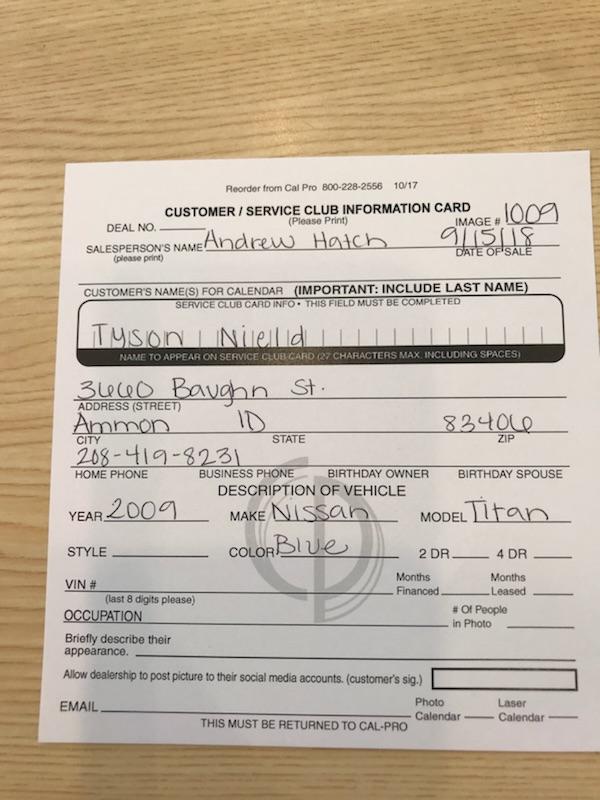 Reorder from Cal Pro 800-228-2556 10/17
CUSTOMER / SERVICE CLUB INFORMATION CARD
(Please Print)
DEAL NO. IMAGE # 1009
SALESPERSON'S NAME Andrew Hatch 9/15/18
(please print) DATE OF SALE
CUSTOMER'S NAME(S) FOR CALENDAR (IMPORTANT: INCLUDE LAST NAME)
SERVICE CLUB CARD INFO • THIS FIELD MUST BE COMPLETED
Tyson Nield
NAME TO APPEAR ON SERVICE CLUB CARD (27 CHARACTERS MAX. INCLUDING SPACES)
3660 Baughn St.
ADDRESS (STREET)
Ammon ID 83406
CITY STATE ZIP
208-419-8231
HOME PHONE BUSINESS PHONE BIRTHDAY OWNER BIRTHDAY SPOUSE
DESCRIPTION OF VEHICLE
YEAR 2009 MAKE Nissan MODEL Titan
STYLE COLOR Blue 2 DR 4 DR
VIN # Months Financed Months Leased
(last 8 digits please)
OCCUPATION # Of People in Photo
Briefly describe their
appearance.
Allow dealership to post picture to their social media accounts. (customer's sig.)
EMAIL Photo Calendar Laser Calendar
THIS MUST BE RETURNED TO CAL-PRO